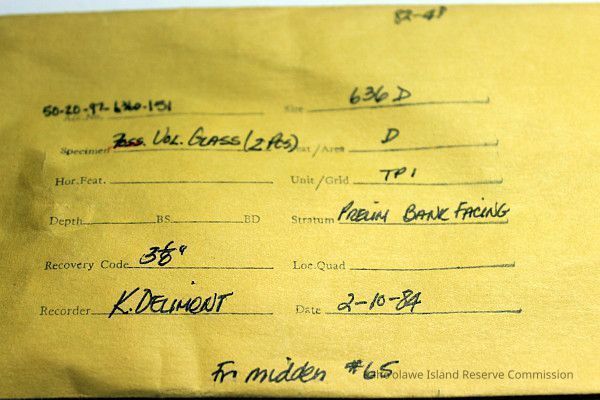 82-48
50-20-97-636-151 Site 636 D
Specimen Poss. Vol. Glass (2 pcs) Feat/Area D
Hor.Feat. Unit/Grid TP1
Depth BS BD Stratum Prelim Bank Facing
Recovery Code 3/8" Loc.Quad
Recorder K. Delimont Date 2-10-84
Fr midden #65
Kahoolawe Island Reserve Commission